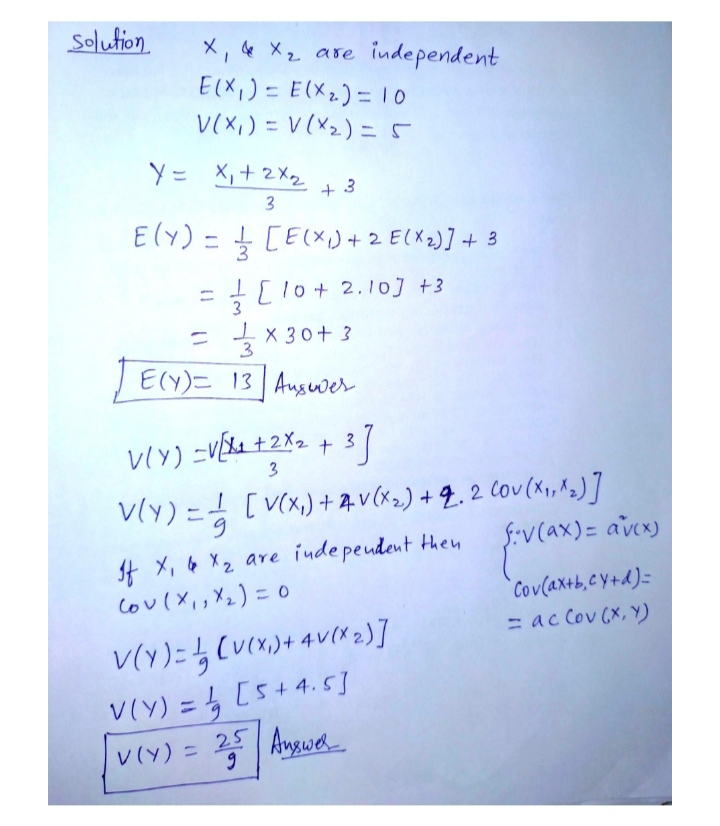 Solution X₁ & X₂ are independent
E(X₁) = E(X₂) = 10
V(X₁) = V(X₂) = 5
Y = (X₁ + 2X₂)/3 + 3
E(Y) = 1/3 [E(X₁) + 2 E(X₂)] + 3
= 1/3 [10 + 2.10] +3
= 1/3 × 30 + 3
E(Y) = 13 Answer
V(Y) = V[(X₁ + 2X₂)/3 + 3]
V(Y) = 1/9 [V(X₁) + 4 V(X₂) + 2.2 Cov(X₁, X₂)]
If X₁ & X₂ are independent then
Cov(X₁, X₂) = 0
{∵ V(ax) = a²V(x)
Cov(ax+b, cY+d) =
= ac Cov(X, Y)
V(Y) = 1/9 [V(X₁) + 4V(X₂)]
V(Y) = 1/9 [5 + 4.5]
V(Y) = 25/9 Answer